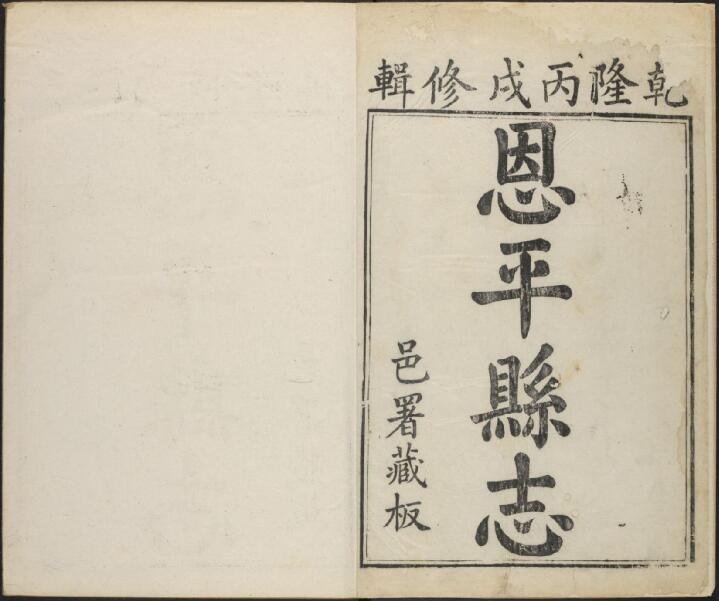 乾隆丙戌修輯
恩平縣志
邑署藏板